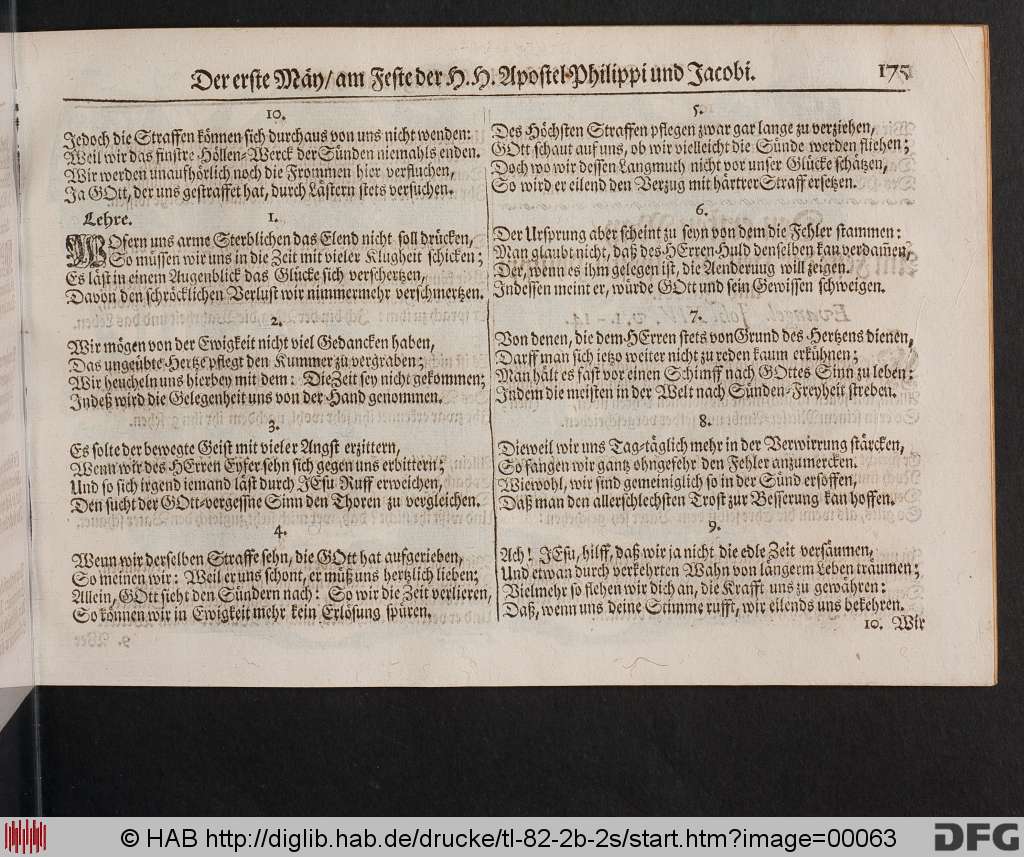 Der erste Mäy/ am Feste der H. H. Apostel Philippi und Jacobi.
175
10.
Jedoch die Straffen können sich durchaus von uns nicht wenden:
Weil wir das finstre Höllen-Werck der Sünden niemahls enden.
Wir werden unaufhörlich noch die Frommen hier verfluchen,
Ja GOtt, der uns gestraffet hat, durch Lästern stets versuchen.
Lehre.
1.
WOfern uns arme Sterblichen das Elend nicht soll drücken,
So müssen wir uns in die Zeit mit vieler Klugheit schicken;
Es läst in einem Augenblick das Glücke sich verschertzen,
Davon den schröcklichen Verlust wir nimmermehr verschmertzen.
2.
Wir mögen von der Ewigkeit nicht viel Gedancken haben,
Das ungeübte Hertze pflegt den Kummer zu vergraben;
Wir heucheln uns hierbey mit dem: Die Zeit sey nicht gekommen;
Indeß wird die Gelegenheit uns von der Hand genommen.
3.
Es solte der bewegte Geist mit vieler Angst erzittern,
Wenn wir des HErren Eyfer sehn sich gegen uns erbittern;
Und so sich irgend iemand läst durch JEsu Ruff erweichen,
Den sucht der GOtt-vergeßne Sinn den Thoren zu vergleichen.
4.
Wenn wir derselben Straffe sehn, die GOtt hat aufgerieben,
So meinen wir: Weil er uns schont, er müß uns hertzlich lieben;
Allein, GOtt sieht den Sündern nach: So wir die Zeit verlieren,
So können wir in Ewigkeit mehr kein Erlösung spüren.
5.
Des Höchsten Straffen pflegen zwar gar lange zu verziehen,
GOtt schaut auf uns, ob wir vielleicht die Sünde werden fliehen;
Doch wo wir dessen Langmuth nicht vor unser Glücke schätzen,
So wird er eilend den Verzug mit härtrer Straff ersetzen.
6.
Der Ursprung aber scheint zu seyn von dem die Fehler stammen:
Man glaubt nicht, daß des HErren Huld denselben kan verdam̃en,
Der, wenn es ihm gelegen ist, die Aenderung will zeigen.
Indessen meint er, würde GOtt und sein Gewissen schweigen.
7.
Von denen, die dem HErren stets von Grund des Hertzens dienen,
Darff man sich ietzo weiter nicht zu reden kaum erkühnen;
Man hält es fast vor einen Schimff nach GOttes Sinn zu leben:
Indem die meisten in der Welt nach Sünden-Freyheit streben.
8.
Dieweil wir uns Tag-täglich mehr in der Verwirrung stärcken,
So fangen wir gantz ohngefehr den Fehler anzumercken.
Wiewohl, wir sind gemeiniglich so in der Sünd ersoffen,
Daß man den allerschlechsten Trost zur Besserung kan hoffen.
9.
Ach! JEsu, hilff, daß wir ja nicht die edle Zeit versäumen,
Und etwan durch verkehrten Wahn von längerm Leben träumen;
Vielmehr so flehen wir dich an, die Krafft uns zu gewähren:
Daß, wenn uns deine Stimme rufft, wir eilends uns bekehren.
10. Wir
© HAB http://diglib.hab.de/drucke/tl-82-2b-2s/start.htm?image=00063
DFG